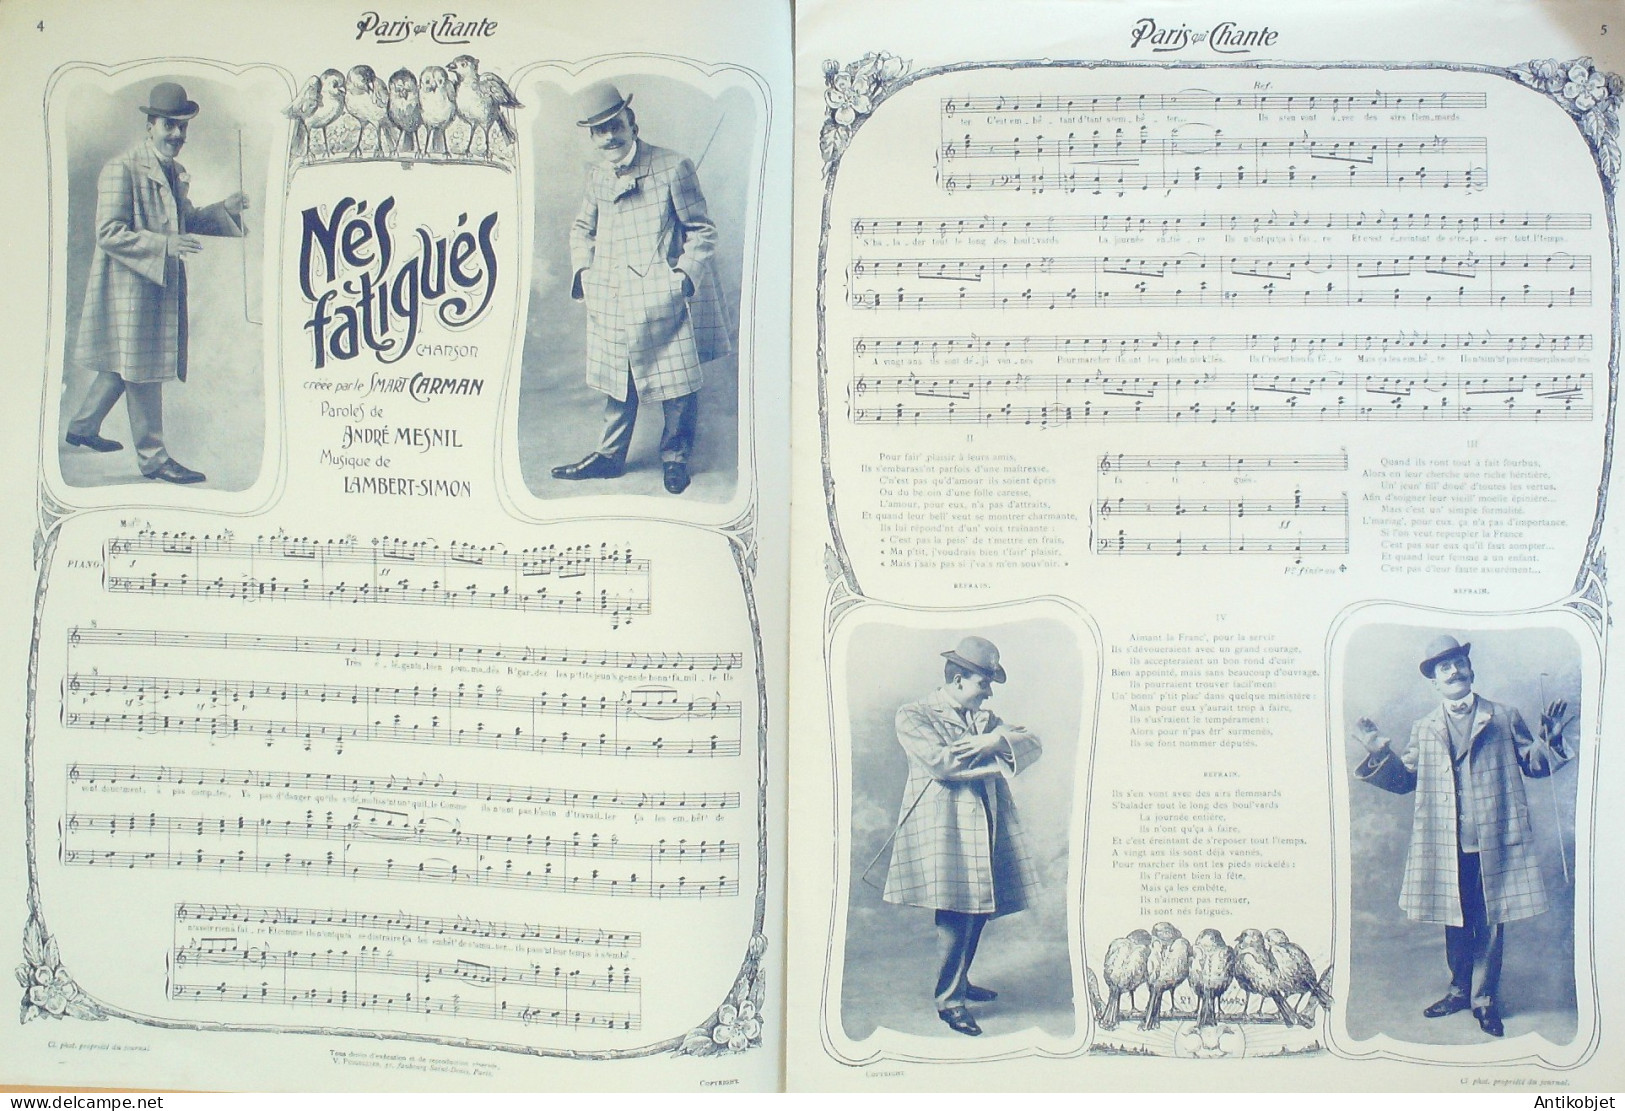 4
Paris qui Chante
Nés
fatigués
CHANSON
créée par le SMART CARMAN
Paroles de
ANDRÉ MESNIL
Musique de
LAMBERT-SIMON
PIANO
Très é_lé_gants, bien pom_ma_dés R'gar_dez les p'tits jeun's gens de bonn' fa_mil_le Ils
sont douc'ment, à pas comp_tés, Ya pas d'danger qu'ils s'dé_molissent un' quil_le Comme ils n'ont pas b'soin d'travail_ler Ça les em_bêt' de
n'avoir rien à fai_re Et comme ils n'ont qu'à se distraire Ça les embêt' de s'amu_ser_ Ils pass'nt leur temps à s'embê_
Cl. phot. propriété du journal.
Tous droits d'exécution et de reproduction réservés.
COPYRIGHT.
5
Paris qui Chante
Ref.
ter. C'est em_bê_tant d'tant s'em_bê_ter... Ils s'en vont a_vec des airs flem_mards
S'ba_la_der tout le long des boul'vards La journée en_tiè_re Ils n'ont qu'ça à fai_re Et c'est éreintant de s're_po_ser tout l'temps.
A vingt ans ils sont dé_jà van_nés Pour marcher ils ont les pieds nick'lés. Ils f'raient bien la fê_te Mais ça les em_bê_te Ils n'aim'nt pas remuer ils sont nés
II
Pour fair' plaisir à leurs amis,
Ils s'embarass'nt parfois d'une maîtresse,
C'n'est pas qu'd'amour ils soient épris
Ou du besoin d'une folle caresse,
L'amour, pour eux, n'a pas d'attraits,
Et quand leur bell' veut se montrer charmante,
Ils lui répond'nt d'un' voix traînante :
« C'est pas la pein' de t'mettre en frais,
« Ma p'tit, j'voudrais bien t'fair' plaisir,
« Mais j'sais pas si j'va's m'en sous'nir. »
REFRAIN.
fa_ ti_ gués.
ff
Pr finir au
III
Quand ils sont tout à fait fourbus,
Alors on leur cherche une riche héritière,
Un' jeun' fill' doué' d'toutes les vertus,
Afin d'soigner leur vieill' moelle épinière...
Mais c'est un' simple formalité.
L'mariag', pour eux, ça n'a pas d'importance,
Si l'on veut repeupler la France
C'est pas sur eux qu'il faut compter...
Et quand leur femme a un enfant,
C'est pas d'leur faute assurément...
REFRAIN.
IV
Aimant la Franc', pour la servir
Ils s'dévoueraient avec un grand courage,
Ils accepteraient un bon rond d'cuir
Bien appointé, mais sans beaucoup d'ouvrage,
Ils pourraient trouver facil'ment
Un' bonn' p'tit plac' dans quelque ministère :
Mais pour eux y'aurait trop à faire,
Ils s'us'raient le tempérament ;
Alors pour n'pas êtr' surmenés,
Ils se font nommer députés.
REFRAIN.
Ils s'en vont avec des airs flemmards
S'balader tout le long des boul'vards
La journée entière,
Ils n'ont qu'ça à faire,
Et c'est éreintant de s'reposer tout l'temps.
A vingt ans ils sont déjà vannés,
Pour marcher ils ont les pieds nickelés :
Ils f'raient bien la fête,
Mais ça les embête,
Ils n'aiment pas remuer,
Ils sont nés fatigués.
21 MARS
COPYRIGHT.
Cl. phot. propriété du journal.
Antikobjet